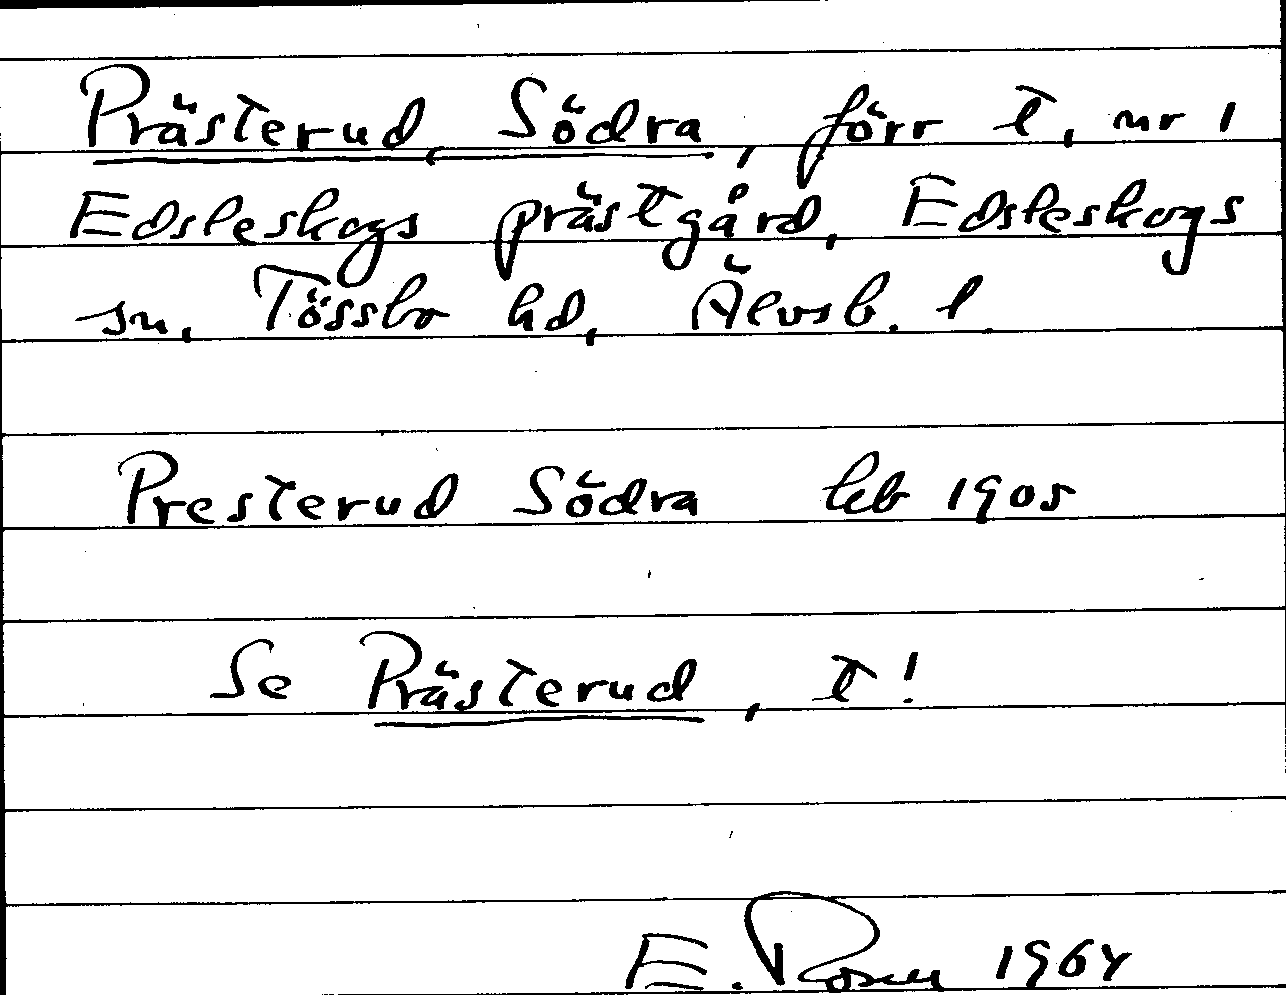 Prästerud, Södra, förr t, nr 1
Edsleskogs prästgård, Edsleskogs
sn, Tössbo hd, Älvsb. l
Presterud Södra leb 1905
Se Prästerud, t!
E. Rosén 1964